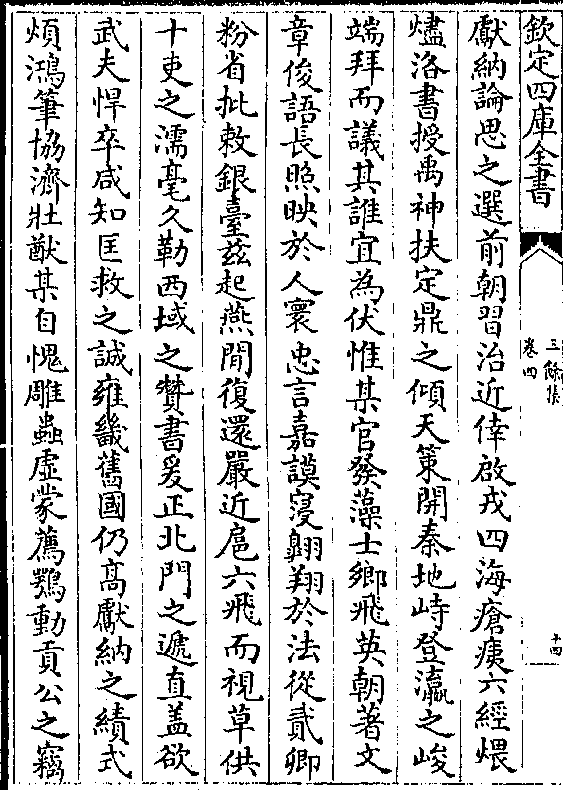 欽定四庫全書
三餘集
卷四
十四
獻納論思之選前朝習治近倖啟戎四海瘡痍六經煨
燼洛書授禹神扶定鼎之傾天策開秦地峙登瀛之峻
端拜而議其誰宜為伏惟某官發藻士鄉飛英朝著文
章俊語長照映於人寰忠言嘉謨寖翺翔於法從貳卿
粉省批敕銀臺兹起燕閒復還嚴近扈六飛而視草供
十吏之濡毫久勒西域之贊書爰正北門之遞直盖欲
武夫悍卒咸知匡救之誠雍畿舊國仍髙獻納之績式
煩鴻筆協濟壯猷某自愧雕蟲虛蒙薦鶚動貢公之竊